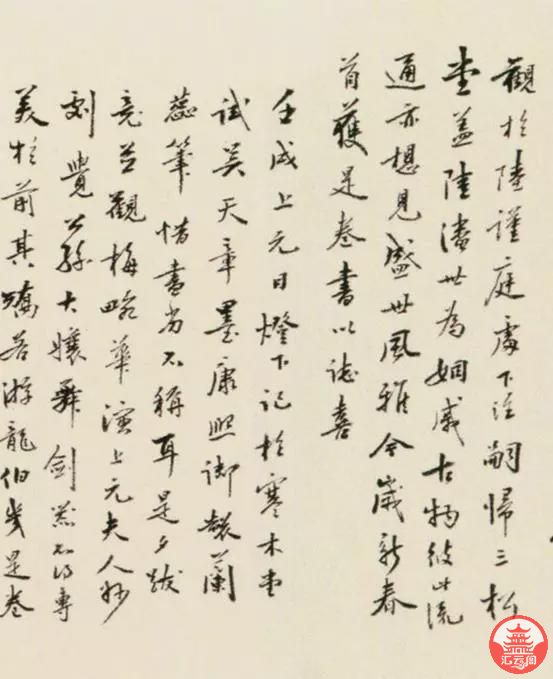 觀於陸謹庭處下注嗣歸三松
堂蓋陸潘世為姻戚古物彼此流
通亦想見盛世風雅今歲新春
首獲是卷書以誌喜
壬戌上元日燈下記於寒木堂
試吳天章墨康熙御製蘭
蕊筆惜書尚不稱耳是夕跋
竟並觀梅畹華演上元夫人妙
劇覺公孫大孃舞劍器不得專
美於前其矯若游龍伯幾是卷
汇云阁